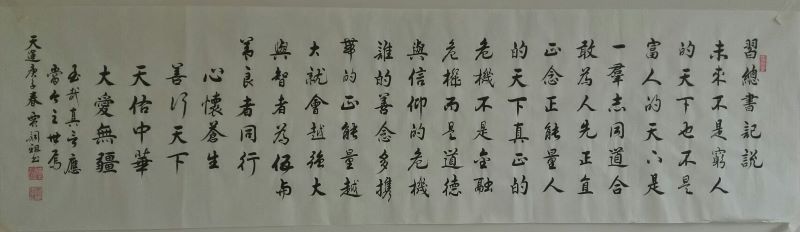 習總書記説
未來不是窮人
的天下也不是
富人的天下是
一羣志同道合
敢為人先正直
正念正能量人
的天下真正的
危機不是金融
危機而是道德
與信仰的危機
誰的善念多携
帶的正能量越
大就會越強大
與智者為伍与
善良者同行
心懷蒼生
善行天下
天佑中華
大愛無疆
至哉真言應
當今之世焉
天運庚子春